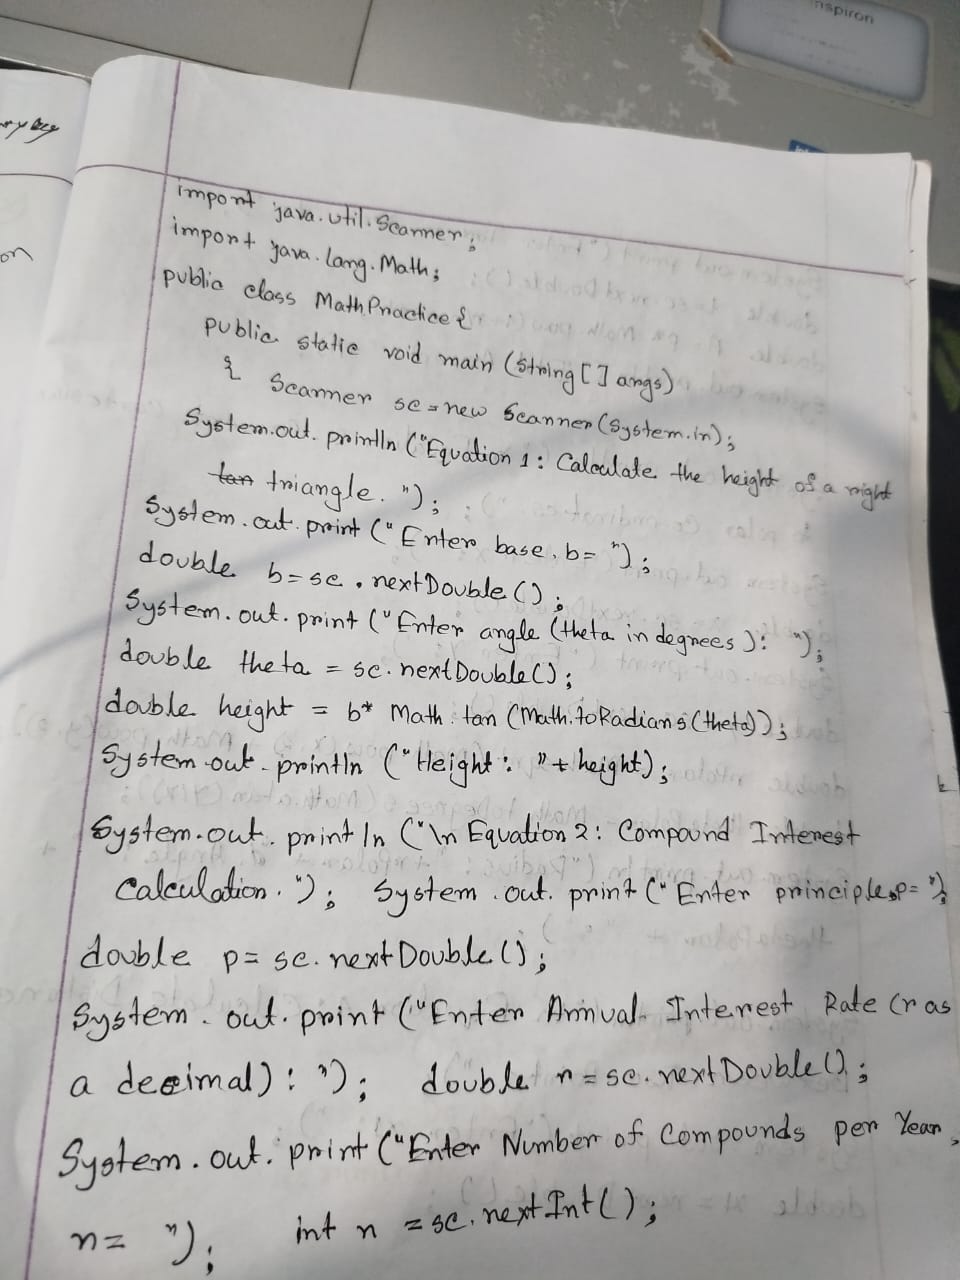 nspiron
on
import java.util.Scanner;
import java.lang.Math;
public class MathPractice {
public static void main (String [] args)
{ Scanner sc = new Scanner (System.in);
System.out.println ("Equation 1: Calculate the height of a right
tan triangle. ");
System.out.print (" Enter base, b= ");
double b = sc.nextDouble ();
System.out.print ("Enter angle (theta in degrees ): ");
double theta = sc.nextDouble();
double height = b* Math.tan (Math.toRadians(theta));
System.out.println ("Height: "+ height);
System.out.println ("\n Equation 2: Compound Interest
Calculation. "); System.out.print (" Enter principle, p= ");
double p = sc.nextDouble ();
System.out.print ("Enter Annual Interest Rate (r as
a decimal) : "); double r = sc.nextDouble ();
System.out.print ("Enter Number of Compounds per Year,
n = "); int n = sc.nextInt ();